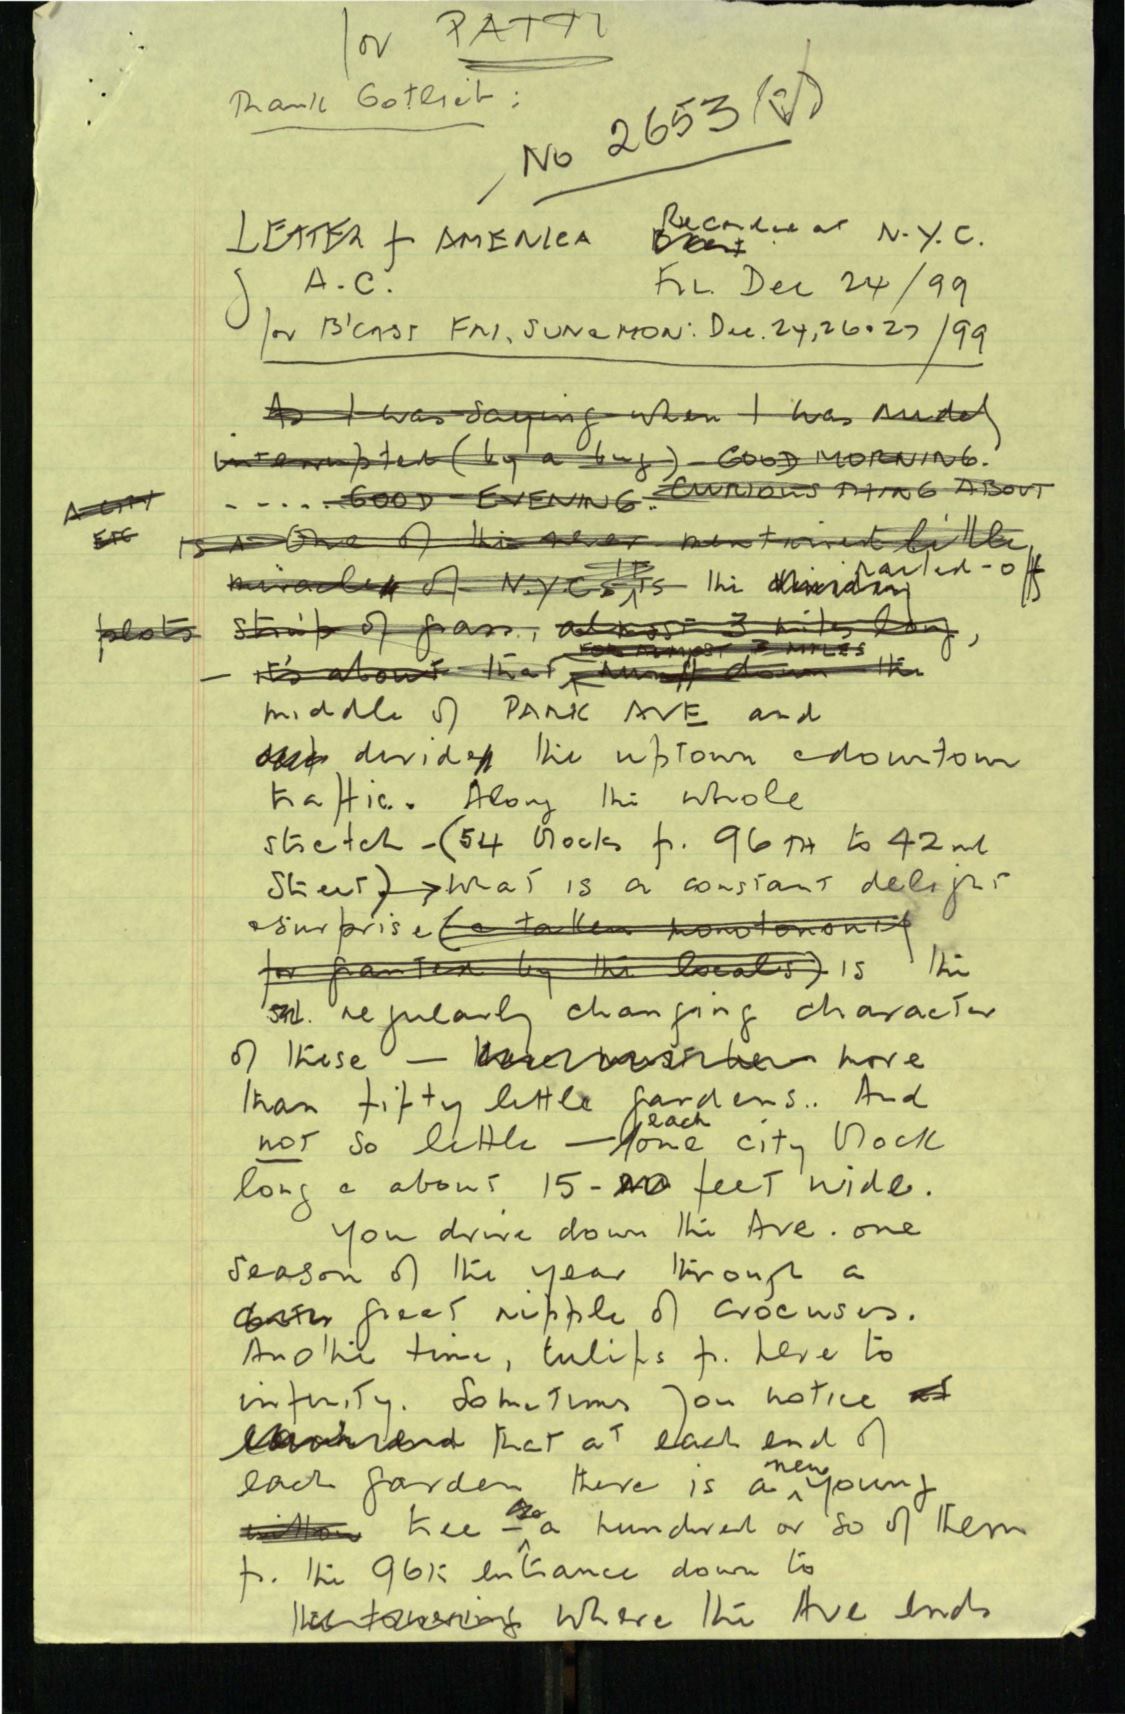 for PATTI
Thank Gotlieb:
No 2653
LETTER f AMERICA Recorded at N.Y.C.
by A.C. Fri. Dec 24/99
for B'CAST FRI, SUN & MON: Dec. 24, 26 + 27/99
As I was saying when I was rudely
interrupted (by a bug) - GOOD MORNING.
..... GOOD EVENING. CURIOUS THING ABOUT
A CITY
ETC
IS A One of the never mentioned little
railed-off
miracles of N.Y.C. is the dividing
plots strip of grass, almost 3 miles long,
FOR ALMOST 3 MILES
- it's about that runs down the
middle of PARK AVE and
divides the uptown & downtown
traffic. Along the whole
stretch - (54 blocks fr. 96TH to 42nd
Street) → What is a constant delight
& surprise (& taken monotonously
for granted by the locals) is the
regularly changing character
of these — more
than fifty little gardens.. And
each
not so little — one city block
long & about 15- feet wide.
You drive down the Ave. one
season of the year through a
great ripple of crocuses.
Another time, tulips fr. here to
infinity. Sometimes you notice at
each end that at each end of
new
each garden there is a ^ young
tree - so a hundred or so of them
fr. the 96th entrance down to
the towering where the Ave ends